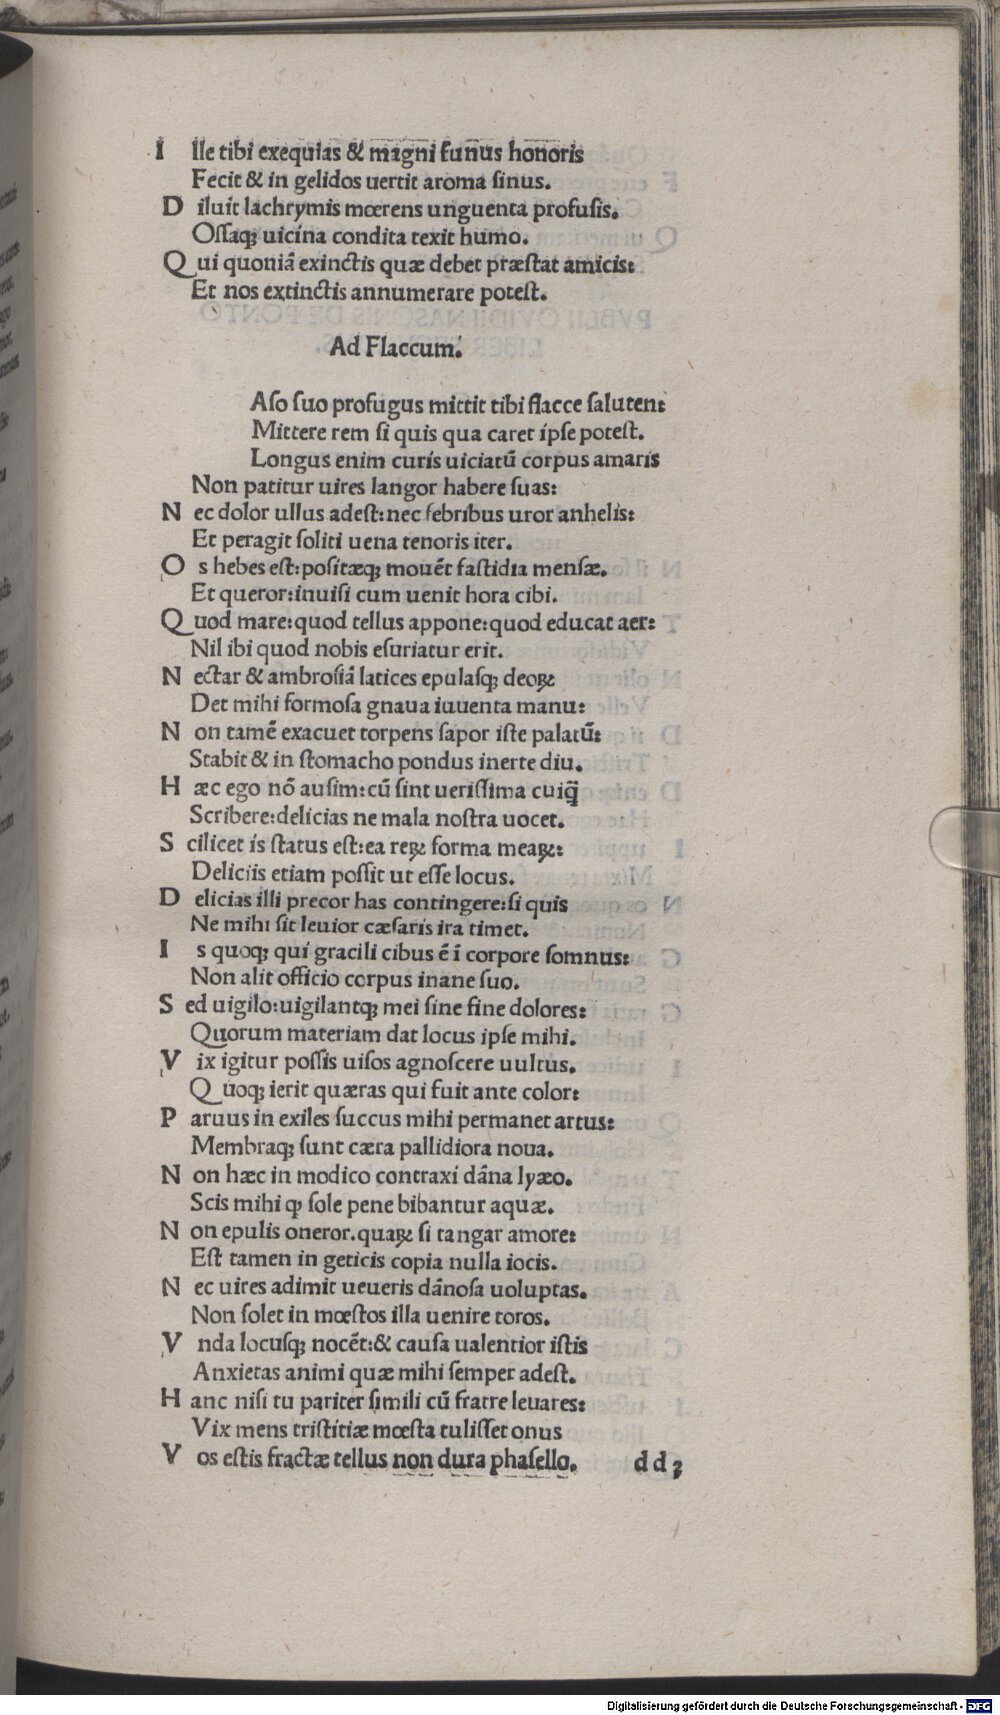 I lle tibi exequias & magni funus honoris
Fecit & in gelidos uertit aroma ſinus.
D iluit lachrymis mœrens unguenta profuſis.
Oſſaqꝫ uicina condita texit humo.
Q ui quoniã exinctis quæ debet præſtat amicis:
Et nos extinctis annumerare poteſt.
Ad Flaccum.
Aſo ſuo profugus mittit tibi flacce ſalutem:
Mittere rem ſi quis qua caret ipſe poteſt.
Longus enim curis uiciatũ corpus amaris
Non patitur uires langor habere ſuas:
N ec dolor ullus adeſt:nec febribus uror anhelis:
Et peragit ſoliti uena tenoris iter.
O s hebes eſt:poſitæqꝫ mouẽt faſtidia menſæ.
Et queror:inuiſi cum uenit hora cibi.
Q uod mare:quod tellus appone:quod educat aer:
Nil ibi quod nobis eſuriatur erit.
N ectar & ambroſiã latices epulaſqꝫ deoꝝ
Det mihi formoſa gnaua iuuenta manu:
N on tamẽ exacuet torpens ſapor iſte palatũ:
Stabit & in ſtomacho pondus inerte diu.
H æc ego nõ auſim:cũ ſint ueriſſima cuiq̃
Scribere:delicias ne mala noſtra uocet.
S cilicet is ſtatus eſt:ea reꝝ forma meaꝝ:
Deliciis etiam poſſit ut eſſe locus.
D elicias illi precor has contingere:ſi quis
Ne mihi ſit leuior cæſaris ira timet.
I s quoqꝫ qui gracili cibus ẽ ĩ corpore ſomnus:
Non alit officio corpus inane ſuo.
S ed uigilo:uigilantqꝫ mei ſine fine dolores:
Quorum materiam dat locus ipſe mihi.
V ix igitur poſſis uiſos agnoſcere uultus.
Q uoqꝫ ierit quæras qui fuit ante color:
P aruus in exiles ſuccus mihi permanet artus:
Membraqꝫ ſunt cæra pallidiora noua.
N on hæc in modico contraxi dãna lyæo.
Scis mihi ꝙ ſole pene bibantur aquæ.
N on epulis oneror.quaꝝ ſi tangar amore:
Eſt tamen in geticis copia nulla iocis.
N ec uires adimit ueueris dãnoſa uoluptas.
Non ſolet in mœſtos illa uenire toros.
V nda locuſqꝫ nocẽt:& cauſa ualentior iſtis
Anxietas animi quæ mihi ſemper adeſt.
H anc niſi tu pariter ſimili cũ fratre leuares:
Vix mens triſtitiæ mœſta tuliſſet onus
V os eſtis fractæ tellus non dura phaſello.
d d ꝫ
Digitalisierung gefördert durch die Deutsche Forschungsgemeinschaft - DFG